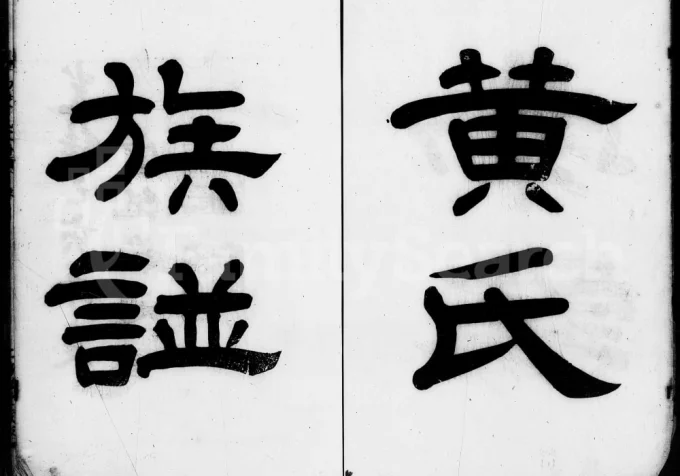 黄氏
族譜
FamilySearch